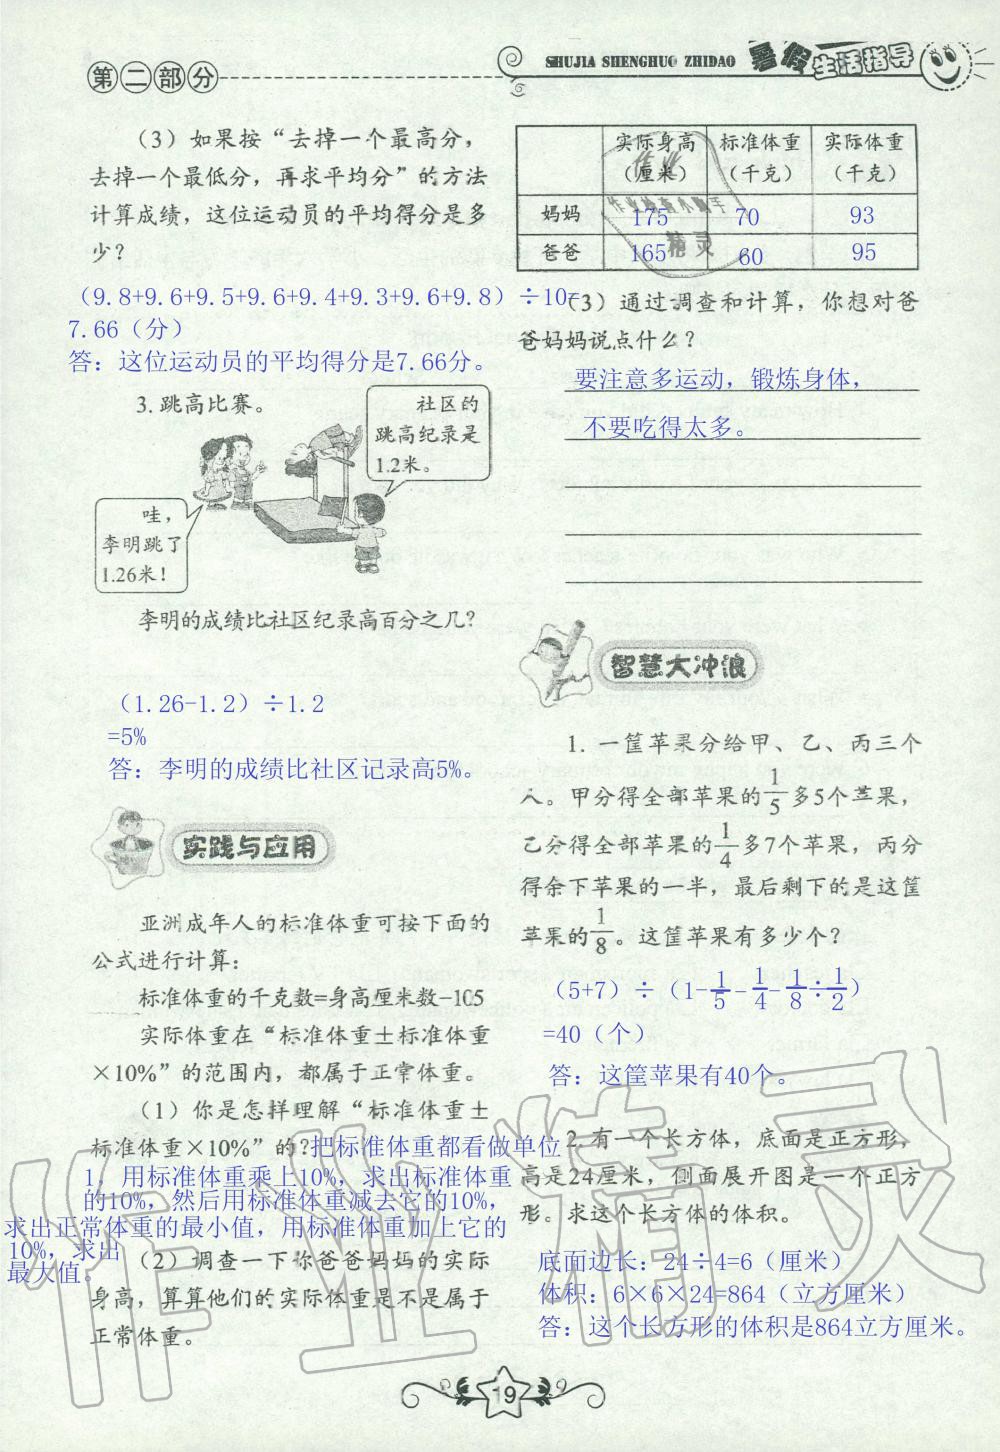 第二部分
SHUJIA SHENGHUO ZHIDAO 暑假生活指导
（3）如果按“去掉一个最高分，
去掉一个最低分，再求平均分”的方法
计算成绩，这位运动员的平均得分是多
少？
（9.8+9.6+9.5+9.6+9.4+9.3+9.6+9.8）÷10=
7.66（分）
答：这位运动员的平均得分是7.66分。
3. 跳高比赛。
社区的
跳高纪录是
1.2米。
哇，
李明跳了
1.26米！
李明的成绩比社区纪录高百分之几？
（1.26-1.2）÷1.2
=5%
答：李明的成绩比社区记录高5%。
实践与应用
亚洲成年人的标准体重可按下面的
公式进行计算：
标准体重的千克数=身高厘米数−105
实际体重在“标准体重±标准体重
×10%”的范围内，都属于正常体重。
（1）你是怎样理解“标准体重±
标准体重×10%”的？把标准体重都看做单位
1，用标准体重乘上10%，求出标准体重
的10%，然后用标准体重减去它的10%，
求出正常体重的最小值，用标准体重加上它的
10%，求出
最大值。
（2）调查一下你爸爸妈妈的实际
身高，算算他们的实际体重是不是属于
正常体重。
实际身高（厘米） 标准体重（千克） 实际体重（千克）
妈妈 175 70 93
爸爸 165 60 95
（3）通过调查和计算，你想对爸
爸妈妈说点什么？
要注意多运动，锻炼身体，
不要吃得太多。
智慧大冲浪
1. 一筐苹果分给甲、乙、丙三个
人。甲分得全部苹果的1/5多5个苹果，
乙分得全部苹果的1/4多7个苹果，丙分
得余下苹果的一半，最后剩下的是这筐
苹果的1/8。这筐苹果有多少个？
（5+7）÷（1-1/5-1/4-1/8÷1/2）
=40（个）
答：这筐苹果有40个。
2. 有一个长方体，底面是正方形，
高是24厘米，侧面展开图是一个正方
形。求这个长方体的体积。
底面边长：24÷4=6（厘米）
体积：6×6×24=864（立方厘米）
答：这个长方形的体积是864立方厘米。
19
作业精灵